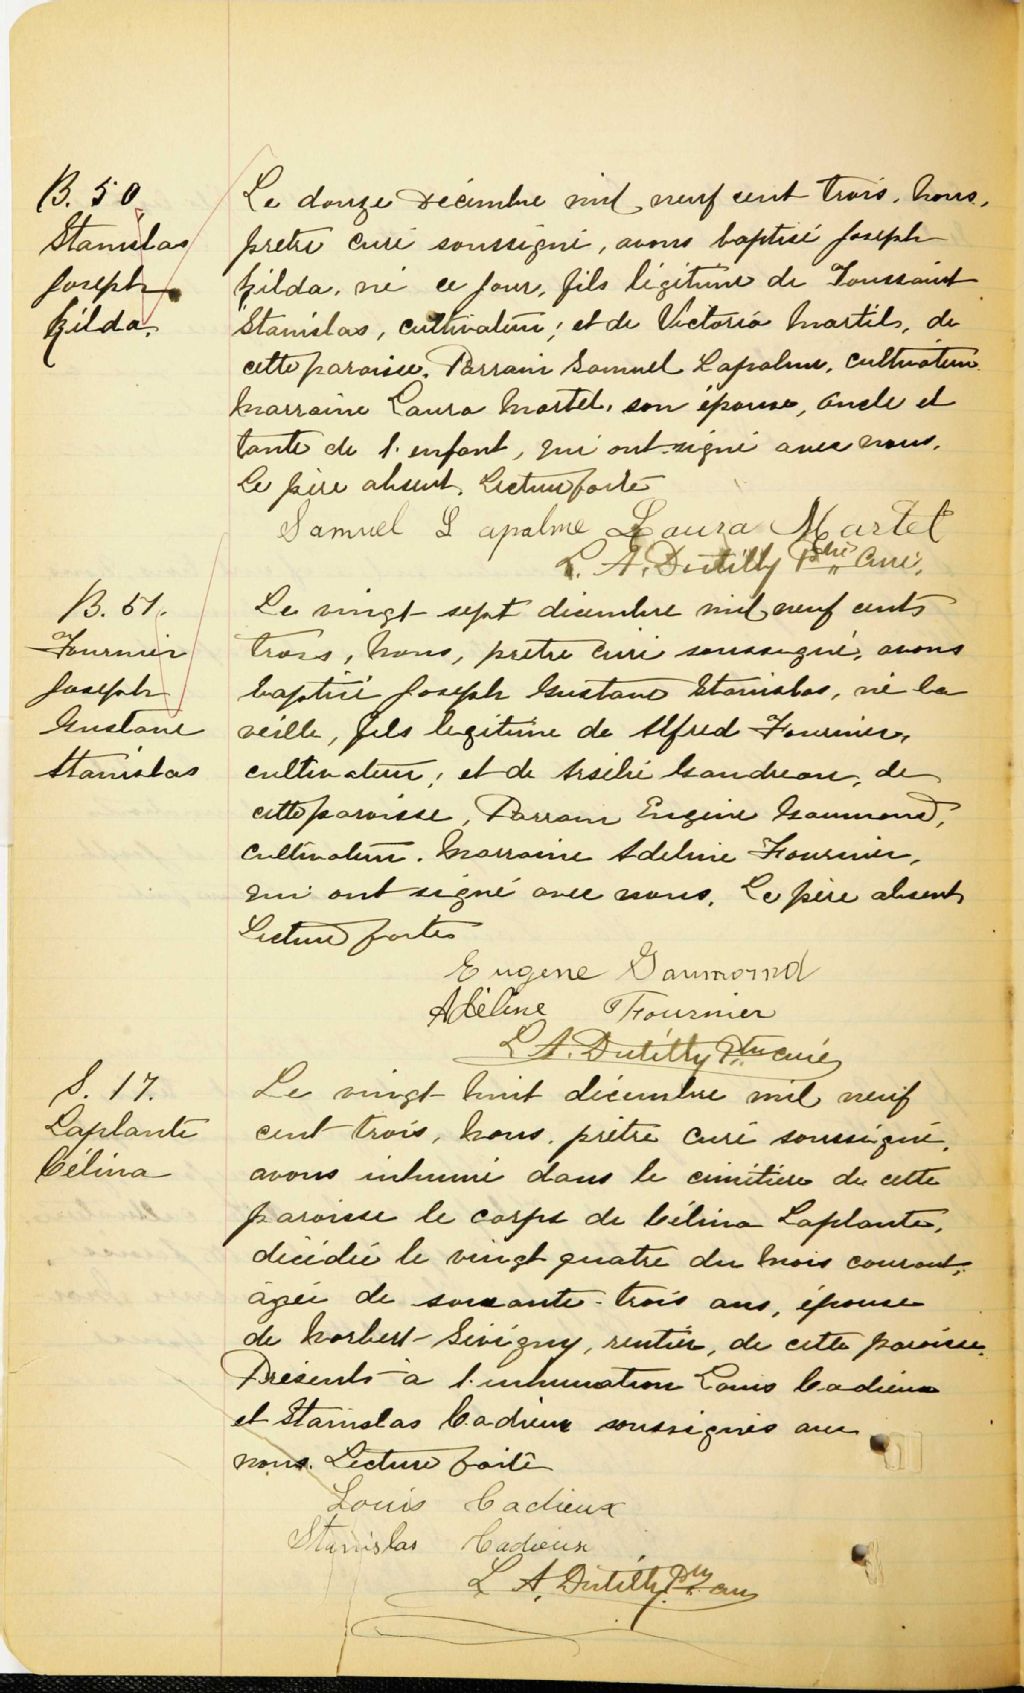 B. 50
Stanislas
Joseph
Gilda.
Le douze décembre mil neuf cent trois, nous,
prêtre curé soussigné, avons baptisé Joseph
Gilda, né ce jour, fils légitime de Toussaint
Stanislas, cultivateur; et de Victoria Martel, de
cette paroisse. Parrain Samuel Lapalme, cultivateur
Marraine Laura Martel, son épouse, oncle et
tante de l'enfant, qui ont signé avec nous.
Le père absent. Lecture faite
Samuel Lapalme Laura Martel
L. A. Dutilly Ptre Curé.
B. 51.
Fournier
Joseph
Gustave
Stanislas
Le vingt sept décembre mil neuf cents
trois, Nous, prêtre curé soussigné, avons
baptisé Joseph Gustave Stanislas, né la
veille, fils légitime de Alfred Fournier,
cultivateur; et de Gaudreau, de
cette paroisse, Parrain Eugène Gaumond,
cultivateur. Marraine Adeline Fournier,
qui ont signé avec nous. Le père absent
Lecture faite
Eugene Gaumond
Adéline Fournier
L. A. Dutilly Ptre curé
S. 17.
Laplante
Célina
Le vingt huit décembre mil neuf
cent trois, Nous, prêtre curé soussigné,
avons inhumé dans le cimitière de cette
paroisse le corps de Célina Laplante,
décédée le vingt quatre du mois courant,
âgée de soixante-trois ans, épouse
de Norbert Sévigny, rentier, de cette paroisse.
Présents à l'inhumation Louis Cadieux
et Stanislas Cadieux soussignés avec
nous. Lecture faite
Louis Cadieux
Stanislas Cadieux
L. A. Dutilly Ptre cu